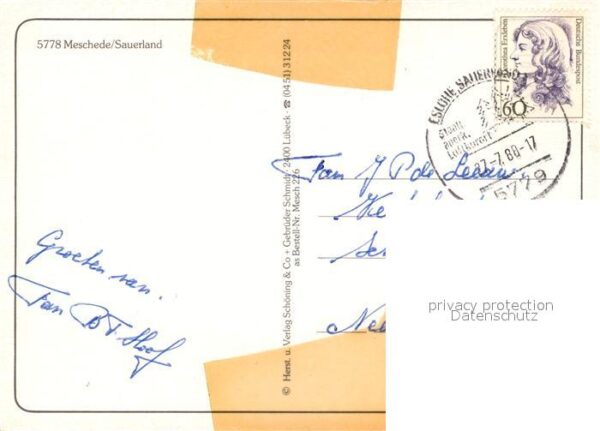 5778 Meschede/Sauerland
Dorothea Erxleben
Deutsche Bundespost
60
ESLOHE, SAUERLAND
Staatl.
anerk.
Luftkurort
27-7.88-17
5779
© Herst. u. Verlag Schöning & Co + Gebrüder Schmidt, 2400 Lübeck · ☎ (04 51) 3 12 24
as Bestell-Nr. Mesch 226
Fam J P de Leeuw
Groeten van.
Fam
privacy protection
Datenschutz